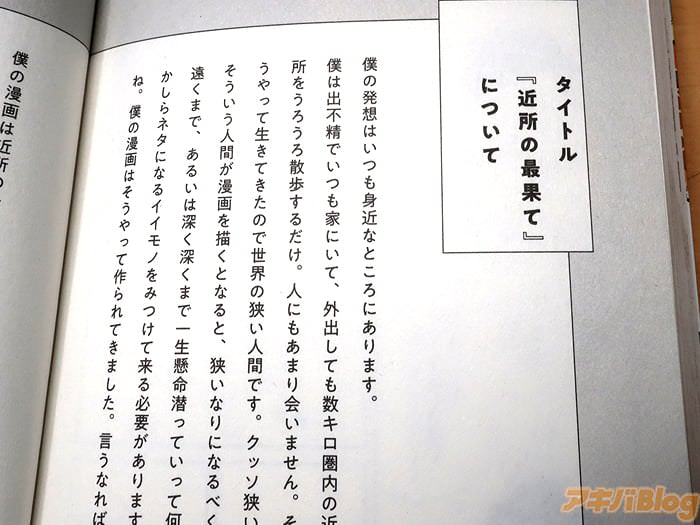 タイトル
『近所の最果て』
について
僕の発想はいつも身近なところにあります。
僕は出不精でいつも家にいて、外出しても数キロ圏内の近
所をうろうろ散歩するだけ。人にもあまり会いません。そ
うやって生きてきたので世界の狭い人間です。クッソ狭い
そういう人間が漫画を描くとなると、狭いなりになるべく
遠くまで、あるいは深く深くまで一生懸命潜っていって何
かしらネタになるイイモノをみつけて来る必要があります
ね。僕の漫画はそうやって作られてきました。言うなれば
僕の漫画は近所の
アキバBlog